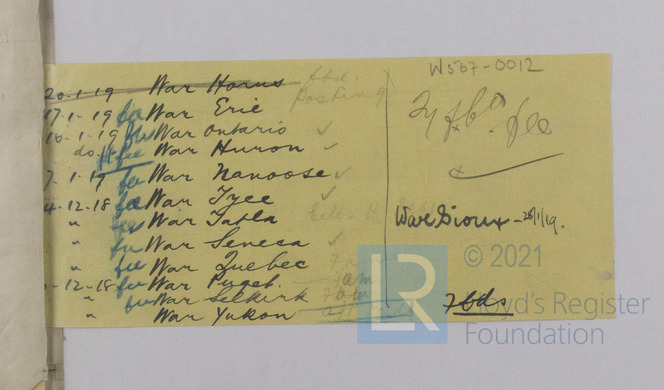 W567-0012
20-1-19 War Horus fbd: Posting
17-1-19 fee War Erie
16-1-19 fee War Ontario ✓
do. fee War Huron ✓
7-1-19 fee War Nanoose ✓
4-12-18 fee War Tyee ✓
" fee War Tatla
" fee War Seneca ✓
" fee War Quebec
-12-18 fee War Puget.
" fee War Selkirk
" War Yukon
fee
War Sioux - 28/1/19.
7 bds
© 2021
LR
Lloyd's Register
Foundation